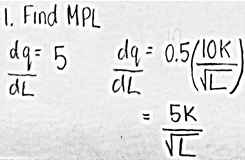 1. Find MPL
dq/dL = 5
dq/dL = 0.5(10K/√L)
= 5K/√L